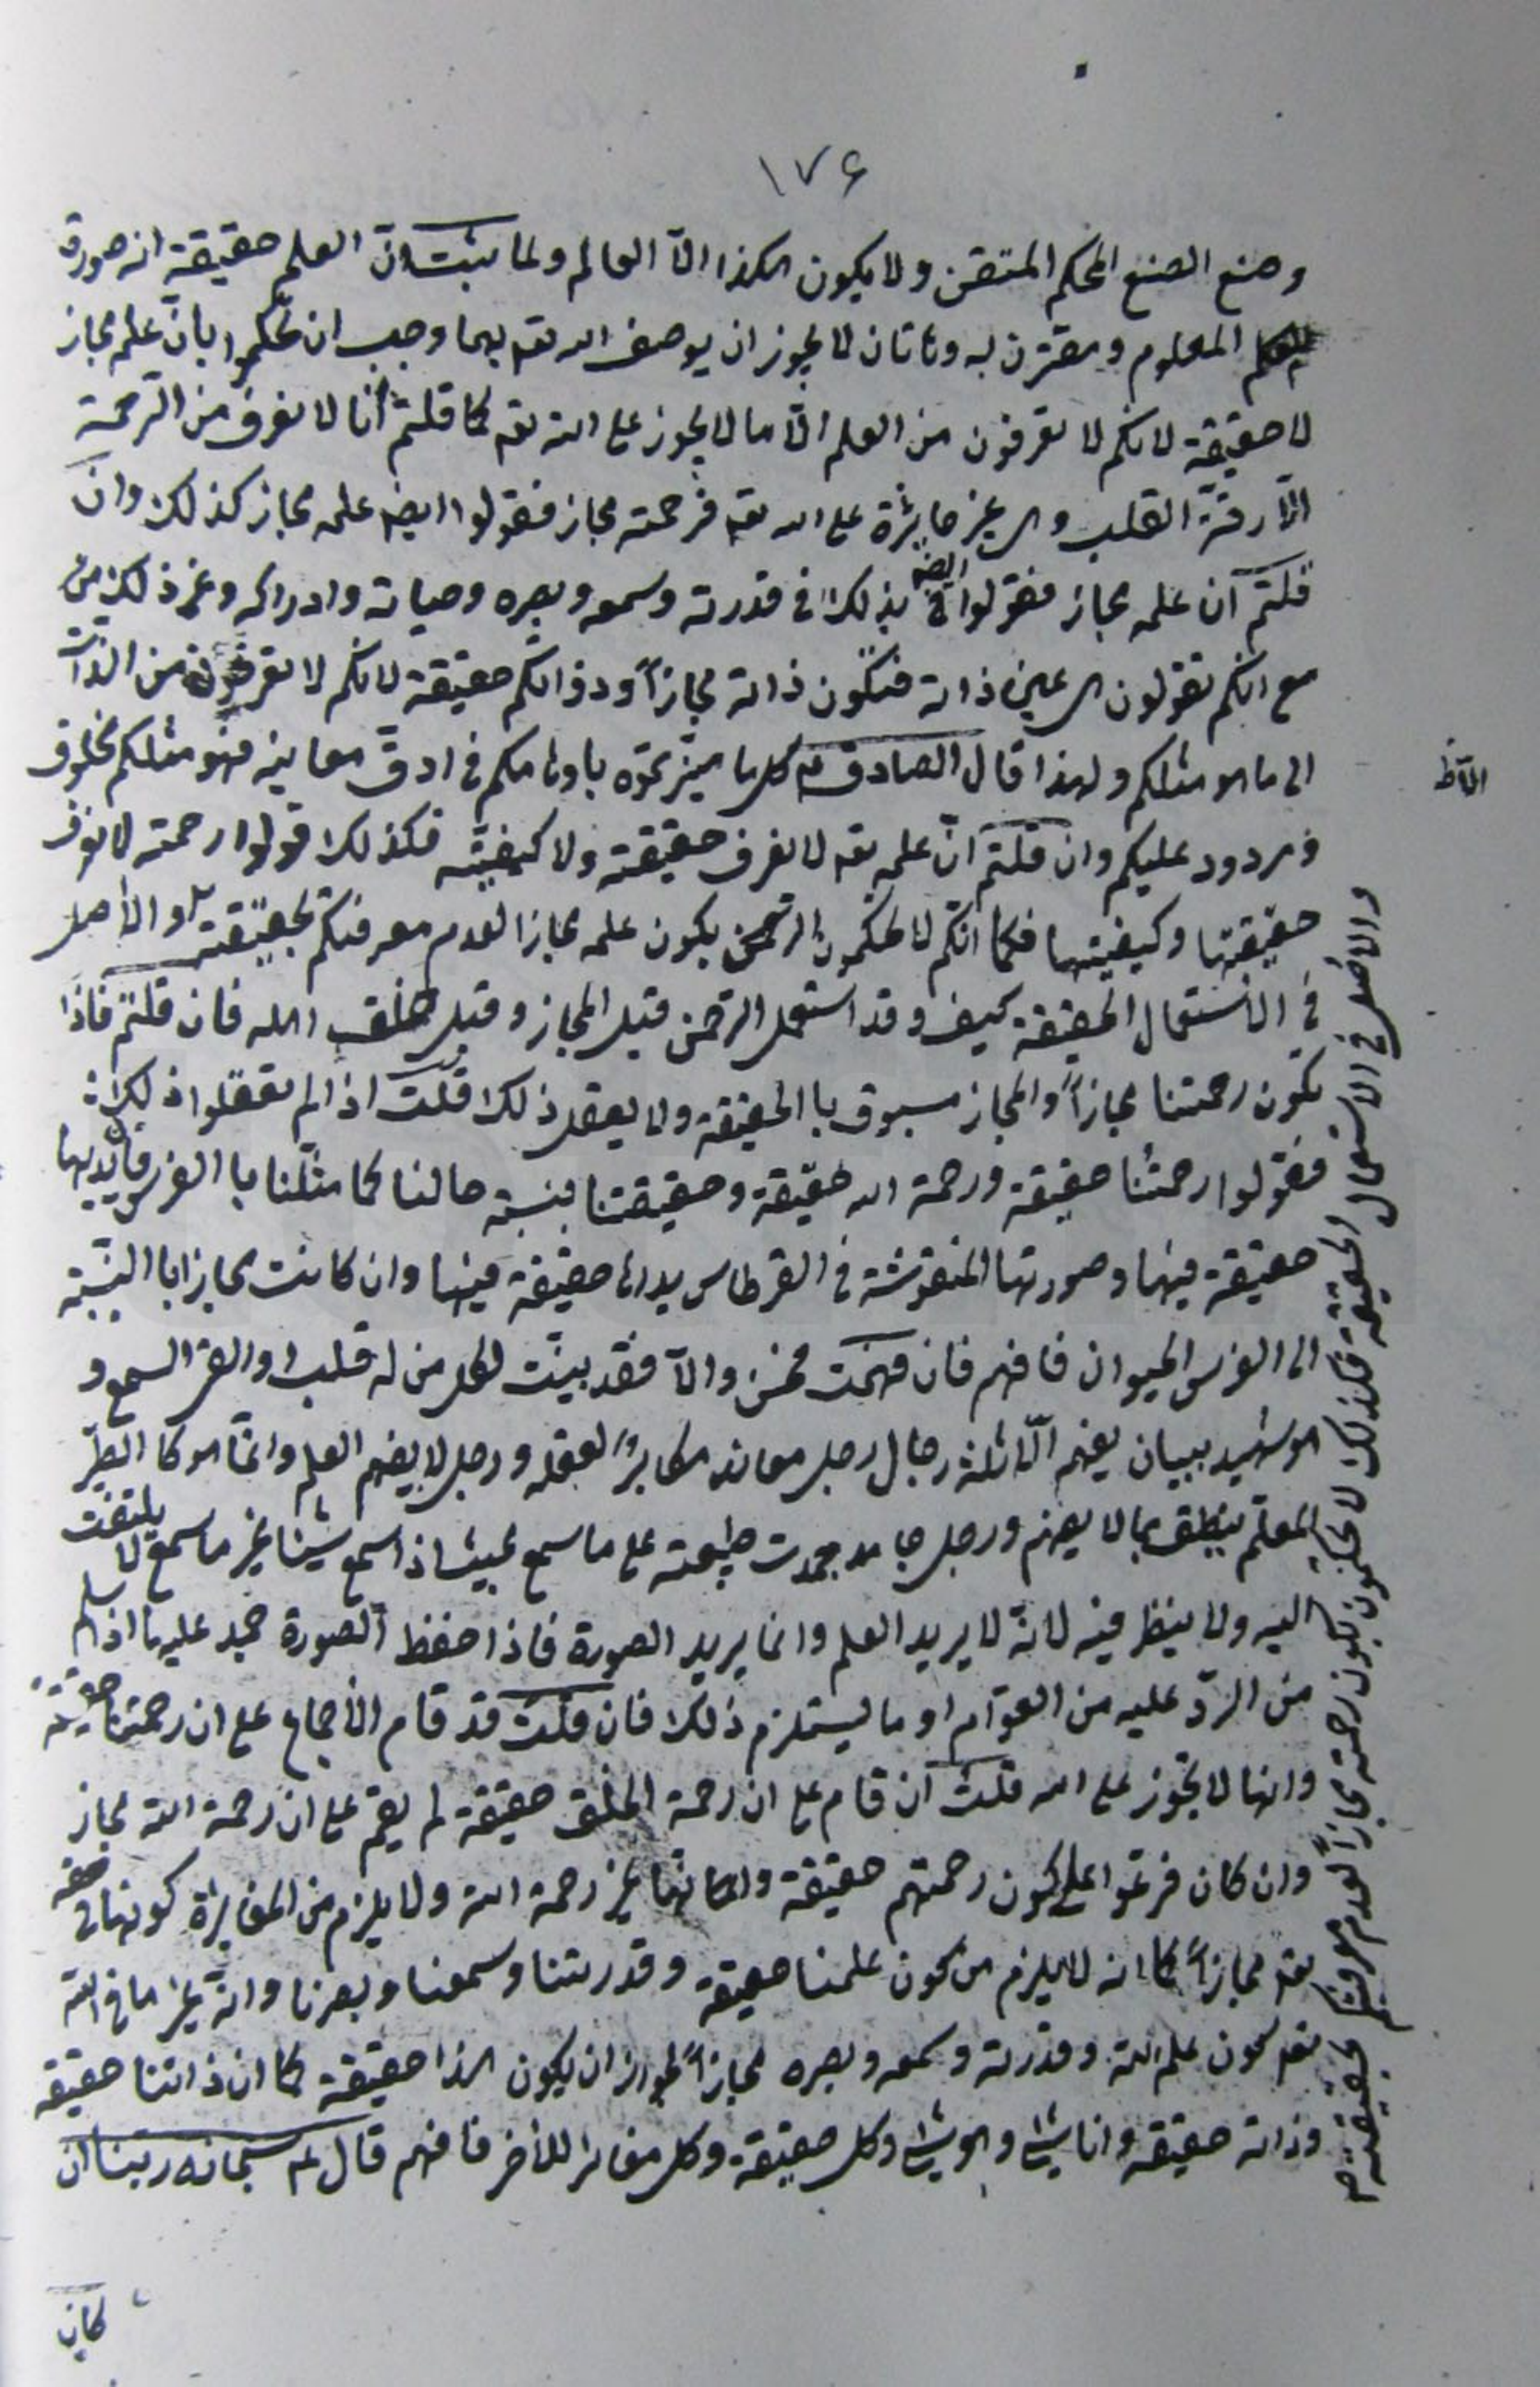 ١٧۶
وصنع الصنع المحكم المتقن ولا يكون هكذا الّا العالم ولما ثبت انّ العلم حقيقة انه صورة
المعلوم ومقترن به وهاتان لا يجوز ان يوصف الله تعه بهما وجب ان تحكموا بانّ علمه مجاز
لا حقيقة لانكم لا تعرفون من العلم الّا ما لا يجوز على الله تعه كما قلتم انا لا نعرف من الرحمة
الّا رقة القلب وهى غير جايزة على الله تعه فرحمته مجاز فقولوا ايضه علمه مجاز كذلك وان
قلتم انّ علمه مجاز فقولوا ايضه بذلك فى قدرته وسمعه وبصره وحياته وادراكه وغير ذلك من
مع انكم تقولون هى عين ذاته فتكون ذاته مجازاً وذواتكم حقيقة لانكم لا تعرفون من الذات
الى ما هو مثلكم ولهذا قال الصادق ع كل ما ميّزتموه باوهامكم فى ادقّ معانيه فهو مثلكم مخلوق
ومردود عليكم وان قلتم انّ علمه تعه لا نعرف حقيقته ولا كيفيّته فكذلك قولوا رحمته لا نعرف
حقيقتها وكيفيتها فكما انّكم لا تحكمون بكون علمه مجازا لعدم معرفتكم بحقيقته والأصل
فى الأستعمال الحقيقة كيف وقد استعمل الرحمن قبل المجاز وقبل خلق الله فان قلتم فاذا
تكون رحمتنا مجازاً والمجاز مسبوق با الحقيقة ولا يعقل ذلك قلت اذا لم تعقلوا ذلك
فقولوا رحمتنا حقيقة ورحمة الله حقيقة وحقيقتنا بنسبة حالنا كما مثّلنا با الفرس فانّ يديها
حقيقة فيها وصورتها المنقوشة فى القرطاس يداها حقيقة فيها وان كانت مجازا با النسبة
الى الفرس الحيوان فافهم فان فهمت فحسن والّا فقد بينت لكل من له قلب او القى السمع و
هو شهيد ببيان يفهم الّا ثلثة رجال رجل معاند مكابر لعقله ورجل لا يفهم العلم وانّما هو كا الطير
المعلّم ينطق بما لا يفهم ورجل جامد جمدت طبيعته على ما سمع بحيث اذا سمع شيئا غير ما سمع لا يلتفت
اليه ولا ينظر فيه لانّه لا يريد العلم وانما يريد الصورة فاذا حفظ الصورة جمد عليها اذا سلم
من الردّ عليه من العوّام او ما يستلزم ذلك فان قلت قد قام الأجماع على ان رحمتنا حقيقة
وانها لا تجوز على الله قلت ان قام على ان رحمة الخلق حقيقة لم يقم على ان رحمة الله مجاز
وان كان فرّعوا على كون رحمتهم حقيقة وانها غير رحمة الله ولا يلزم من المغايرة كونها فى حقه
تعه مجازاً كما انه لا يلزم من كون علمنا حقيقة وقدرتنا وسمعنا وبصرنا وانّه غير ما فى الله
تعه كون علم الله وقدرته وسمعه وبصره مجازاً لجواز ان يكون هذا حقيقة كما ان ذاتنا حقيقة
وذاته حقيقة وانا شئ وهو شئ وكل حقيقة وكل مغاير للأخر فافهم قال له سبحانه ربنا ان
والأصل فى الاستعمال الحقيقة فكذلك لا تحكمون بكون رحمته مجازاً لعدم معرفتكم بحقيقته
كان